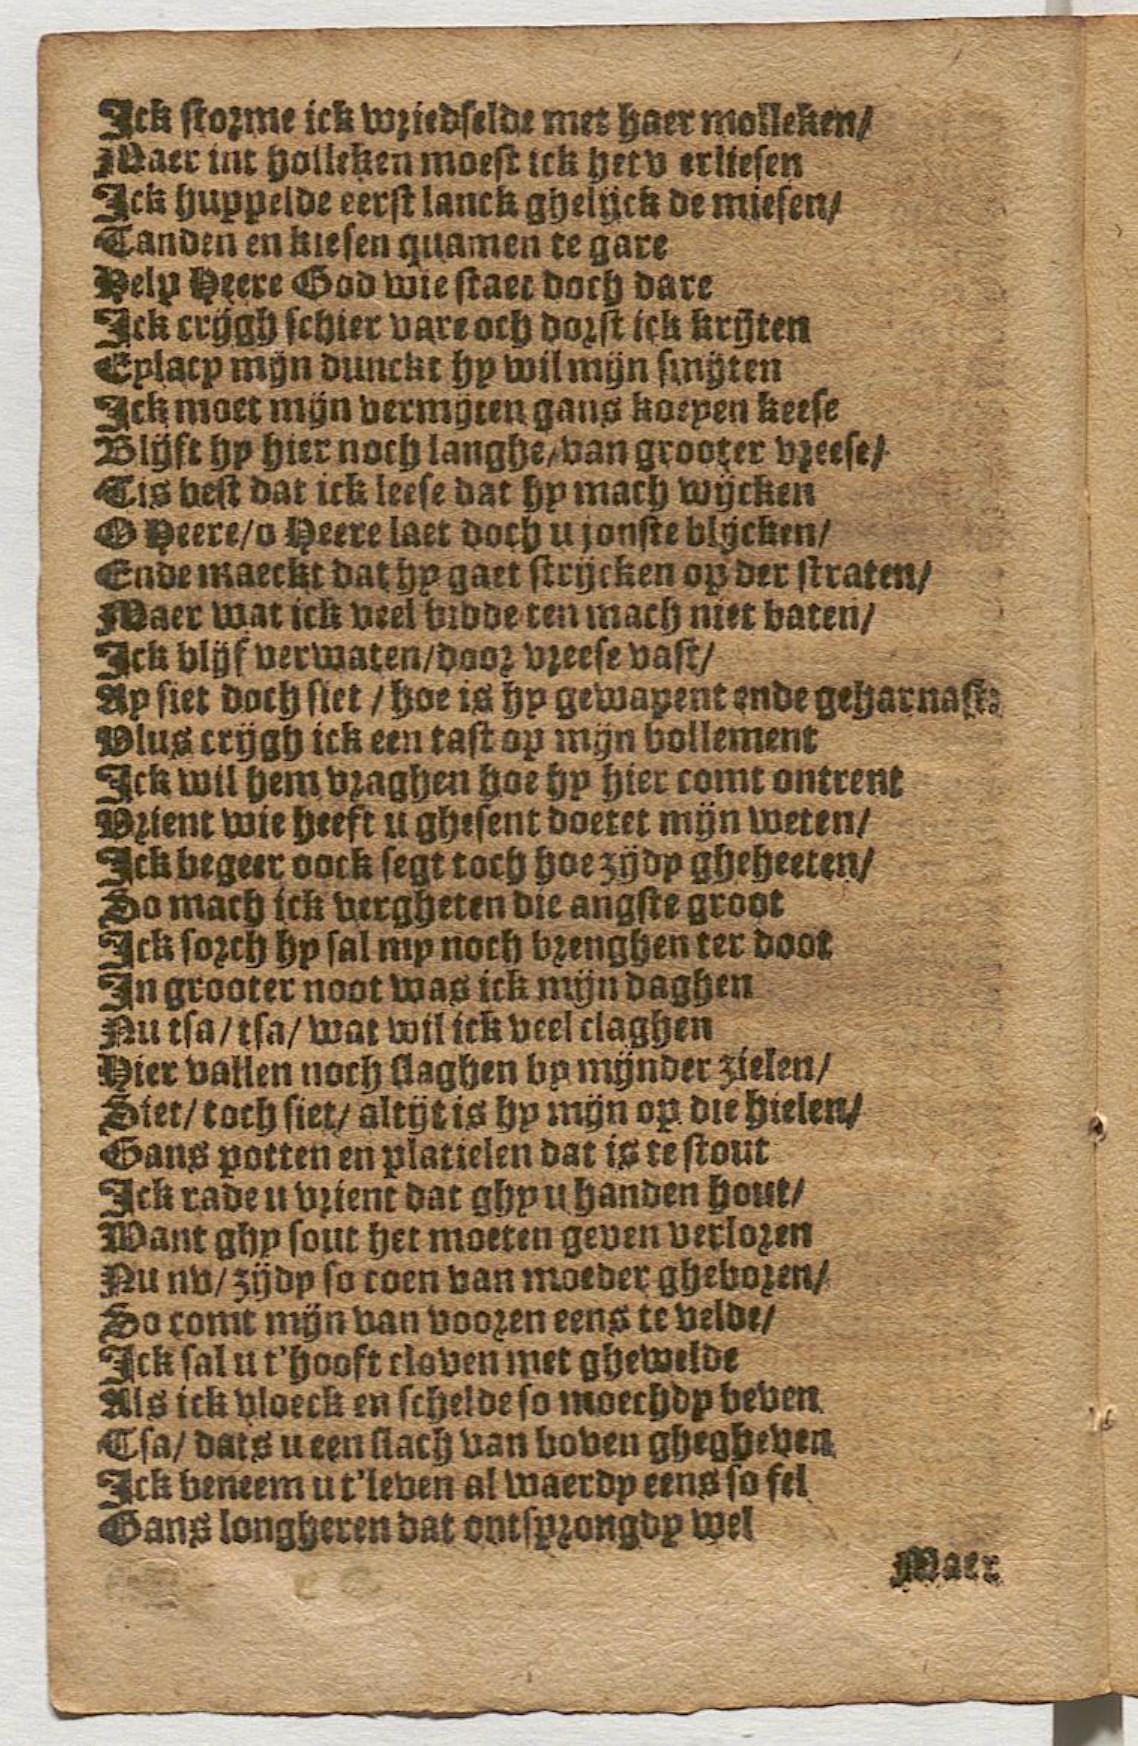 Ick storme ick wriedselde met haer molleken/
Maer int holleken moest ick hetv erliesen
Ick huppelde eerst lanck ghelijck de miesen/
Tanden en kiesen quamen te gare
Help Heere God wie staet doch dare
Ick crijgh schier vare och dorst ick krijten
Eylacy mijn dunckt hy wil mijn smijten
Ick moet mijn vermijten gans koeyen keese
Blijft hy hier noch langhe/van grooter vreese/
Tis best dat ick leese dat hy mach wijcken
O Heere/o Heere laet doch u jonste blijcken/
Ende maeckt dat hy gaet strijcken op der straten/
Maer wat ick veel bidde ten mach niet baten/
Ick blijf verwaten/door vreese vast/
Ay siet doch siet / hoe is hy gewapent ende geharnast:
Vlus crijgh ick een tast op mijn bollement
Ick wil hem vraghen hoe hy hier comt ontrent
Vrient wie heeft u ghesent doetet mijn weten/
Ick begeer oock segt toch hoe zijdy gheheeten/
So mach ick vergheten die angste groot
Ick sorch hy sal my noch brenghen ter doot
In grooter noot was ick mijn daghen
Nu tsa/tsa/ wat wil ick veel claghen
Hier vallen noch slaghen by mijnder zielen/
Siet/ toch siet/ altijt is hy mijn op die hielen/
Gans potten en platielen dat is te stout
Ick rade u vrient dat ghy u handen hout/
Want ghy sout het moeten geven verloren
Nu nv/ zijdy so coen van moeder gheboren/
So comt mijn van vooren eens te velde/
Ick sal u t'hooft cloven met ghewelde
Als ick vloeck en schelde so moechdy beven
Tsa/ dats u een slach van boven ghegheven
Ick beneem u t'leven al waerdy eens so fel
Gans longheren dat ontsprongdy wel
Maer